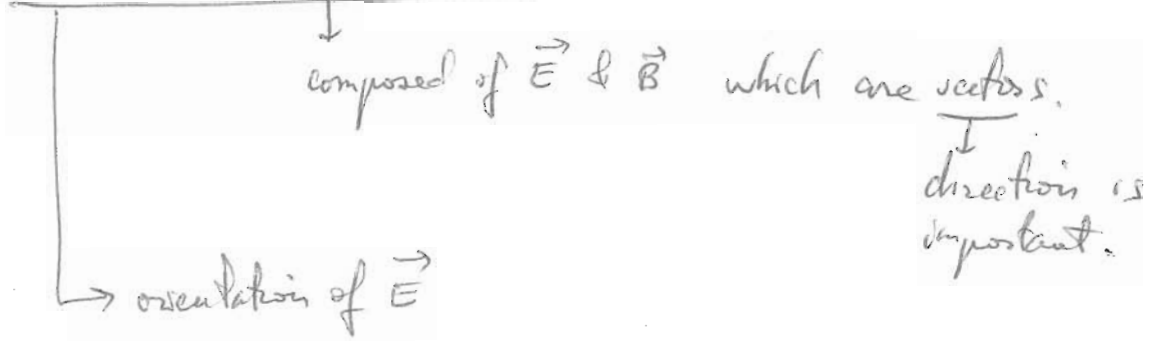 composed of E⃗ & B⃗ which are vectors.
direction is
important.
orientation of E⃗